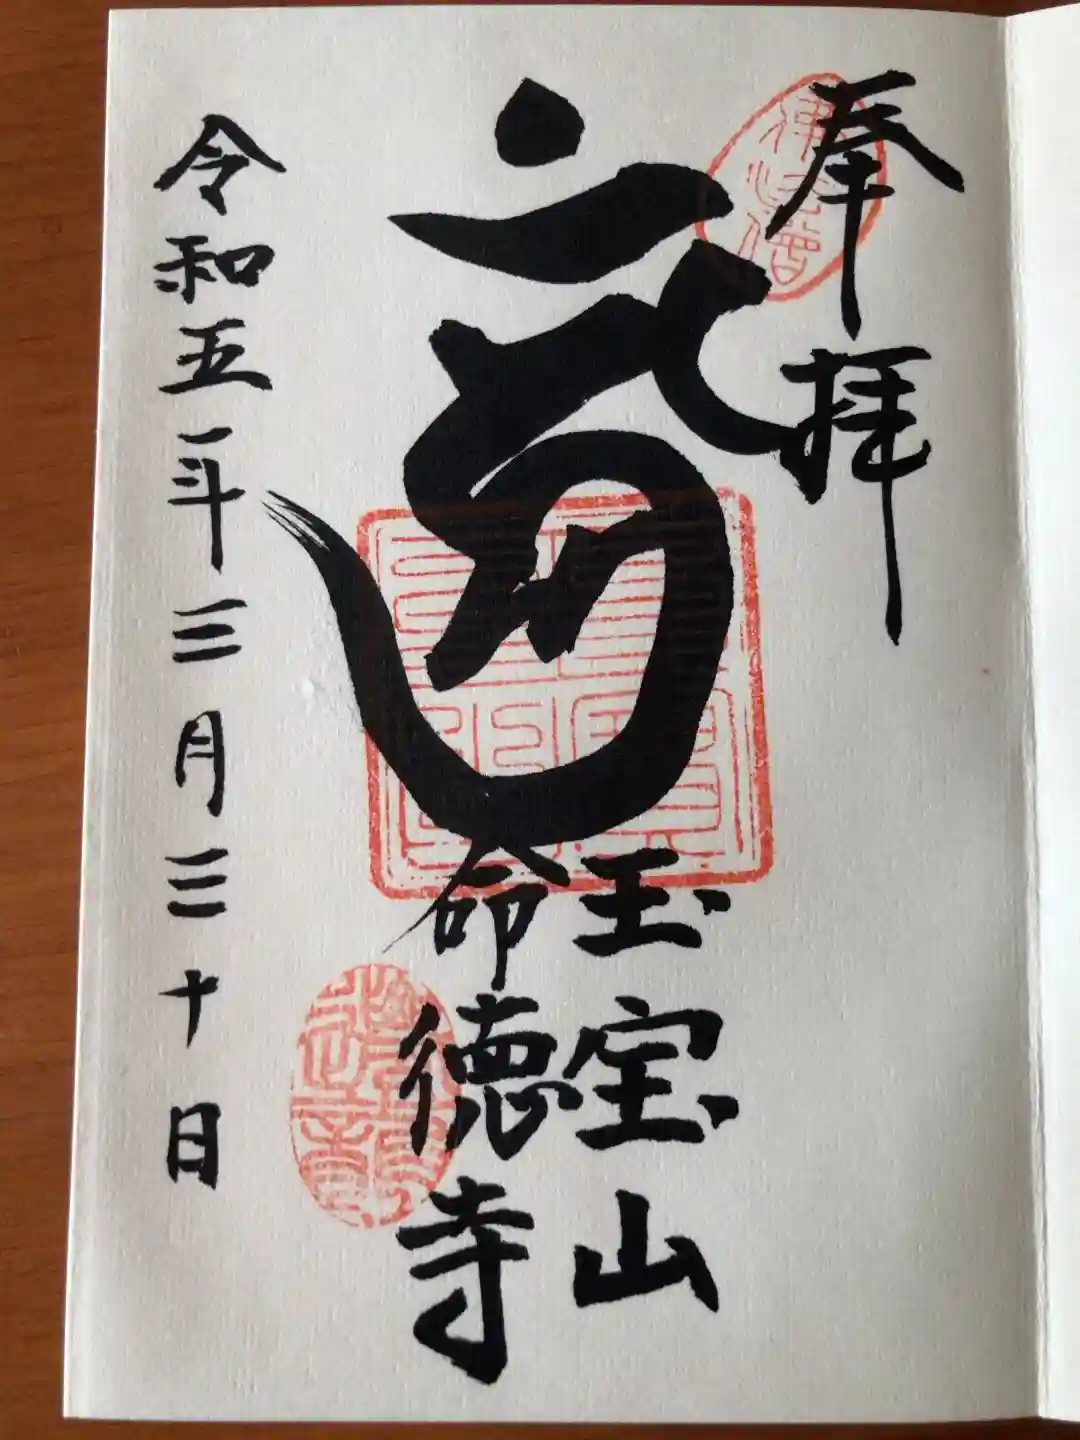 奉拝
佛法僧
玉宝山
命徳寺
令和五年三月三十日